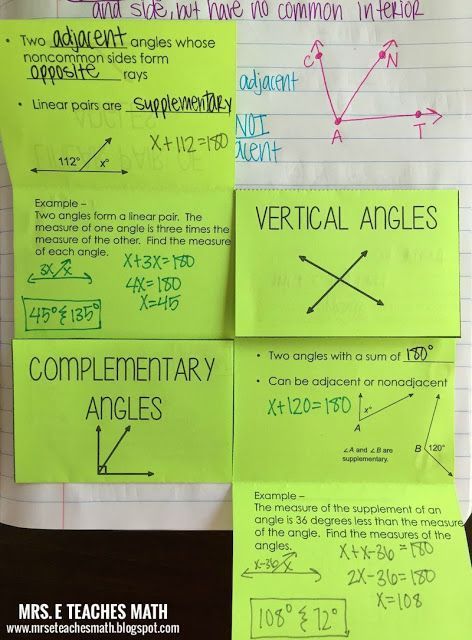 and side, but have no common interior
• Two adjacent angles whose
noncommon sides form
opposite rays
• Linear pairs are supplementary
x+112=180
112° x°
adjacent
NOT
acent
C
N
A
T
Example –
Two angles form a linear pair. The
measure of one angle is three times the
measure of the other. Find the measure
of each angle.
3x x
x+3x=180
4x=180
x=45
45° & 135°
VERTICAL ANGLES
COMPLEMENTARY
ANGLES
• Two angles with a sum of 180°
• Can be adjacent or nonadjacent
x+120=180
x°
A
∠A and ∠B are
supplementary.
B 120°
Example –
The measure of the supplement of an
angle is 36 degrees less than the measure
of the angle. Find the measures of the
angles.
x-36 x
x+x-36=180
2x-36=180
x=108
108° & 72°
MRS. E TEACHES MATH
www.mrseteachesmath.blogspot.com